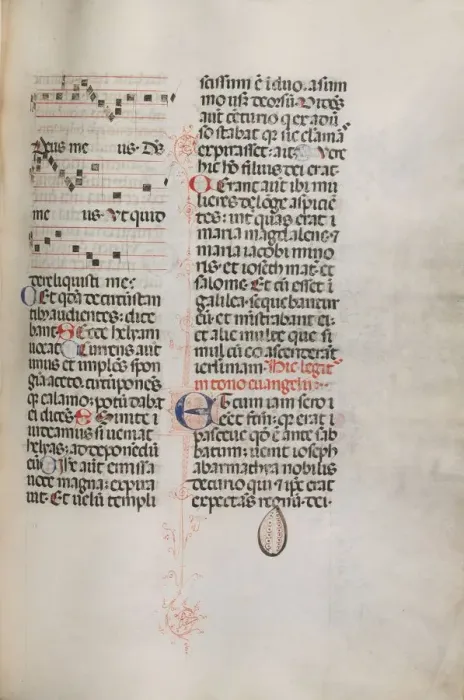 Deus me us. Ds
me us. Ut quid
dereliquisti me?
Et qdā de circūstan
tibȝ audientes: dice
bant. Ecce helyam
vocat. Currens aut
unus et implēs spon
giā aceto. circūponēs
qȝ calamo: potū dabt
ei dicēs. Sinite i
videamus si veniat
helyas: ad deponēdū
eū. Ihc aūt emissa
voce magna: expira
vit. Et velū templi
scissum ē i duo. a sum
mo usqȝ deorsū. Vidēs
aūt centurio q ex adūso
stabat qȝ sic clamā
expirasset: ait. Vere
hic hō filius dei erat.
Erant aūt ibi mu
lieres de lōge aspiciē
tes: int quas erat i
maria magdalene ⁊
maria iacobi mino
ris et ioseph mat et
salome. Et cū esset i
galilea: sequebantur
eū et mīstrabant ei.
et alie multe que si
mul cū eo ascenderāt
ierlimam. Hic legit
in tono euangelii.
Et cum iam sero i
eēt fcm: qȝ erat i
pasceue qd ē ante sab
batum: venit ioseph
abarimathya nobilis
decurio qui ⁊ ipe erat
expectās regnū dei.